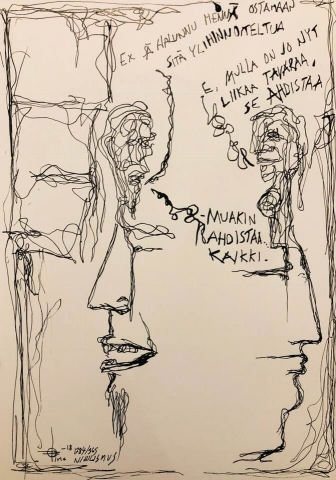 EX SÄ HALUNNU MENNÄ OSTAMAAN
SITÄ YLIHINNOITELTUA
E, MULLA ON JO NYT
LIIKAA TAVARAA.
SE AHDISTAA
-MUAKIN
AHDISTAA.
KAIKKI.
-18
NIHILISMUS